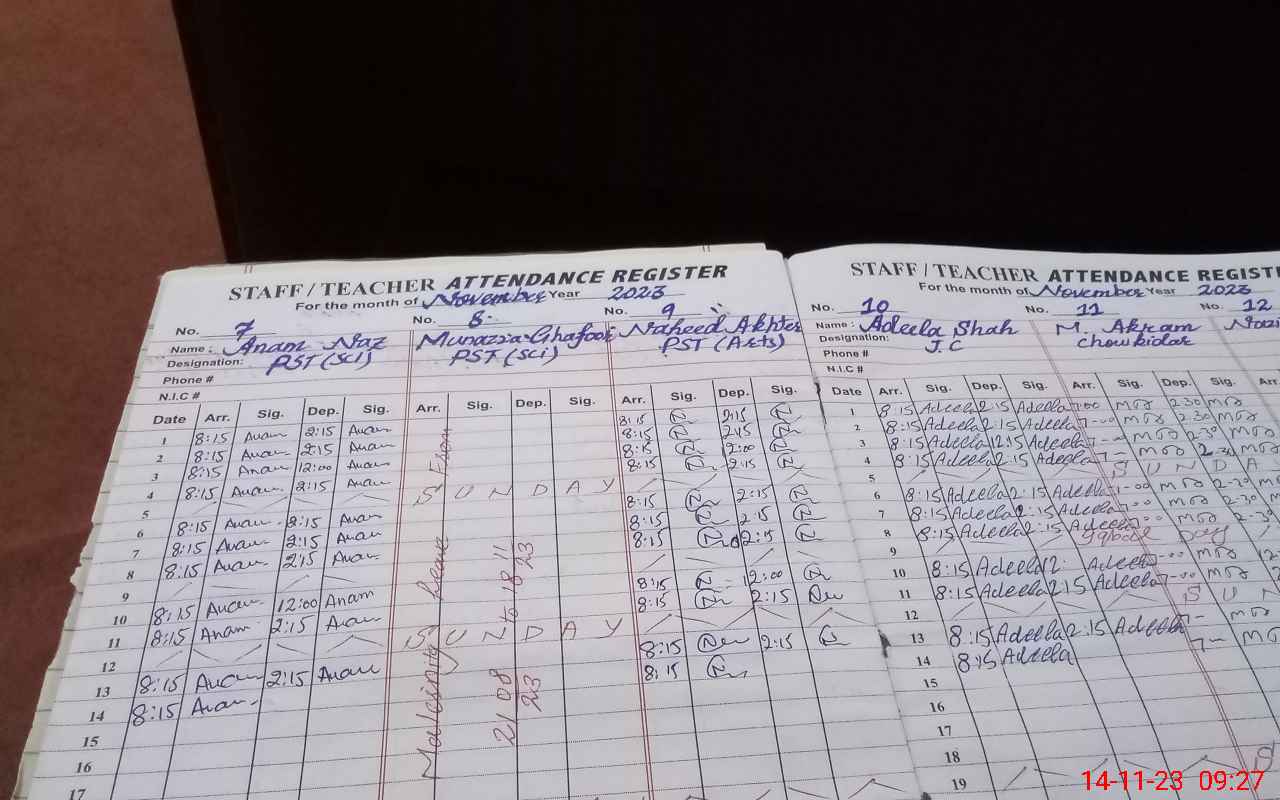 STAFF / TEACHER ATTENDANCE REGISTER
For the month of November Year 2023
No. 7 No. 8 No. 9
Name : Anam Naz Munazza Ghafoor Naheed Akhter
Designation: PST (Sci) PST (Sci) PST (Arts)
Phone #
N.I.C #
Date Arr. Sig. Dep. Sig. Arr. Sig. Dep. Sig. Arr. Sig. Dep. Sig.
1 8:15 Anam 2:15 Anam 8:15 2:15
2 8:15 Anam 2:15 Anam 8:15 2:15
3 8:15 Anam 12:00 Anam 8:15 12:00
4 8:15 Anam 2:15 Anam 8:15 2:15
5 S U N D A Y
6 8:15 Anam 2:15 Anam 8:15 2:15
7 8:15 Anam 2:15 Anam 8:15 2:15
8 8:15 Anam 2:15 Anam 8:15 2:15
9
10 8:15 Anam 12:00 Anam 8:15 12:00
11 8:15 Anam 2:15 Anam 8:15 2:15
12 S U N D A Y
13 8:15 Anam 2:15 Anam 8:15 2:15
14 8:15 Anam 8:15
15
16
17
leave From
21 08 23 to 18 11 23
STAFF / TEACHER ATTENDANCE REGIST
For the month of November Year 2023
No. 10 No. 11 No. 12
Name : Adeela Shah M. Akram Nazi
Designation: J.C Chowkidar
Phone #
N.I.C #
Date Arr. Sig. Dep. Sig. Arr. Sig. Dep. Sig. Arr
1 8:15 Adeela 2:15 Adeela 7:00 2:30
2 8:15 Adeela 2:15 Adeela 7-00 2:30
3 8:15 Adeela 12:15 Adeela 7- 2:30
4 8:15 Adeela 2:15 Adeela 7- 2:30
5 S U N D A
6 8:15 Adeela 2:15 Adeela 7-00 2-30
7 8:15 Adeela 2:15 Adeela 7-00 2-30
8 8:15 Adeela 2:15 Adeela 7-00 2-3
9 Iqbal Day
10 8:15 Adeela 2: Adeela 7-00 12
11 8:15 Adeela 2:15 Adeela 7-00
12 S U N
13 8:15 Adeela 2:15 Adeela 7-
14 8:15 Adeela 7-
15
16
17
18
19 S
14-11-23 09:27